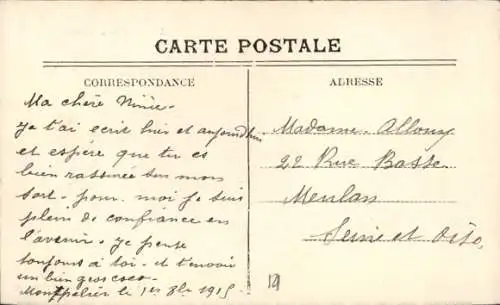 CARTE POSTALE
CORRESPONDANCE
ADRESSE
Ma chère Ninie.
Je t'ai ecrit hier et aujourd'hui
et espère que tu es
bien rassurée sur mon
sort. pour moi je suis
plein de confiance en
l'avenir. je pense
toujours à toi. et t'envoie
un bien gros
Montpelier le 1er 1915
Madame Allouy
22 Rue Basse
Meulan
Seine et Oise